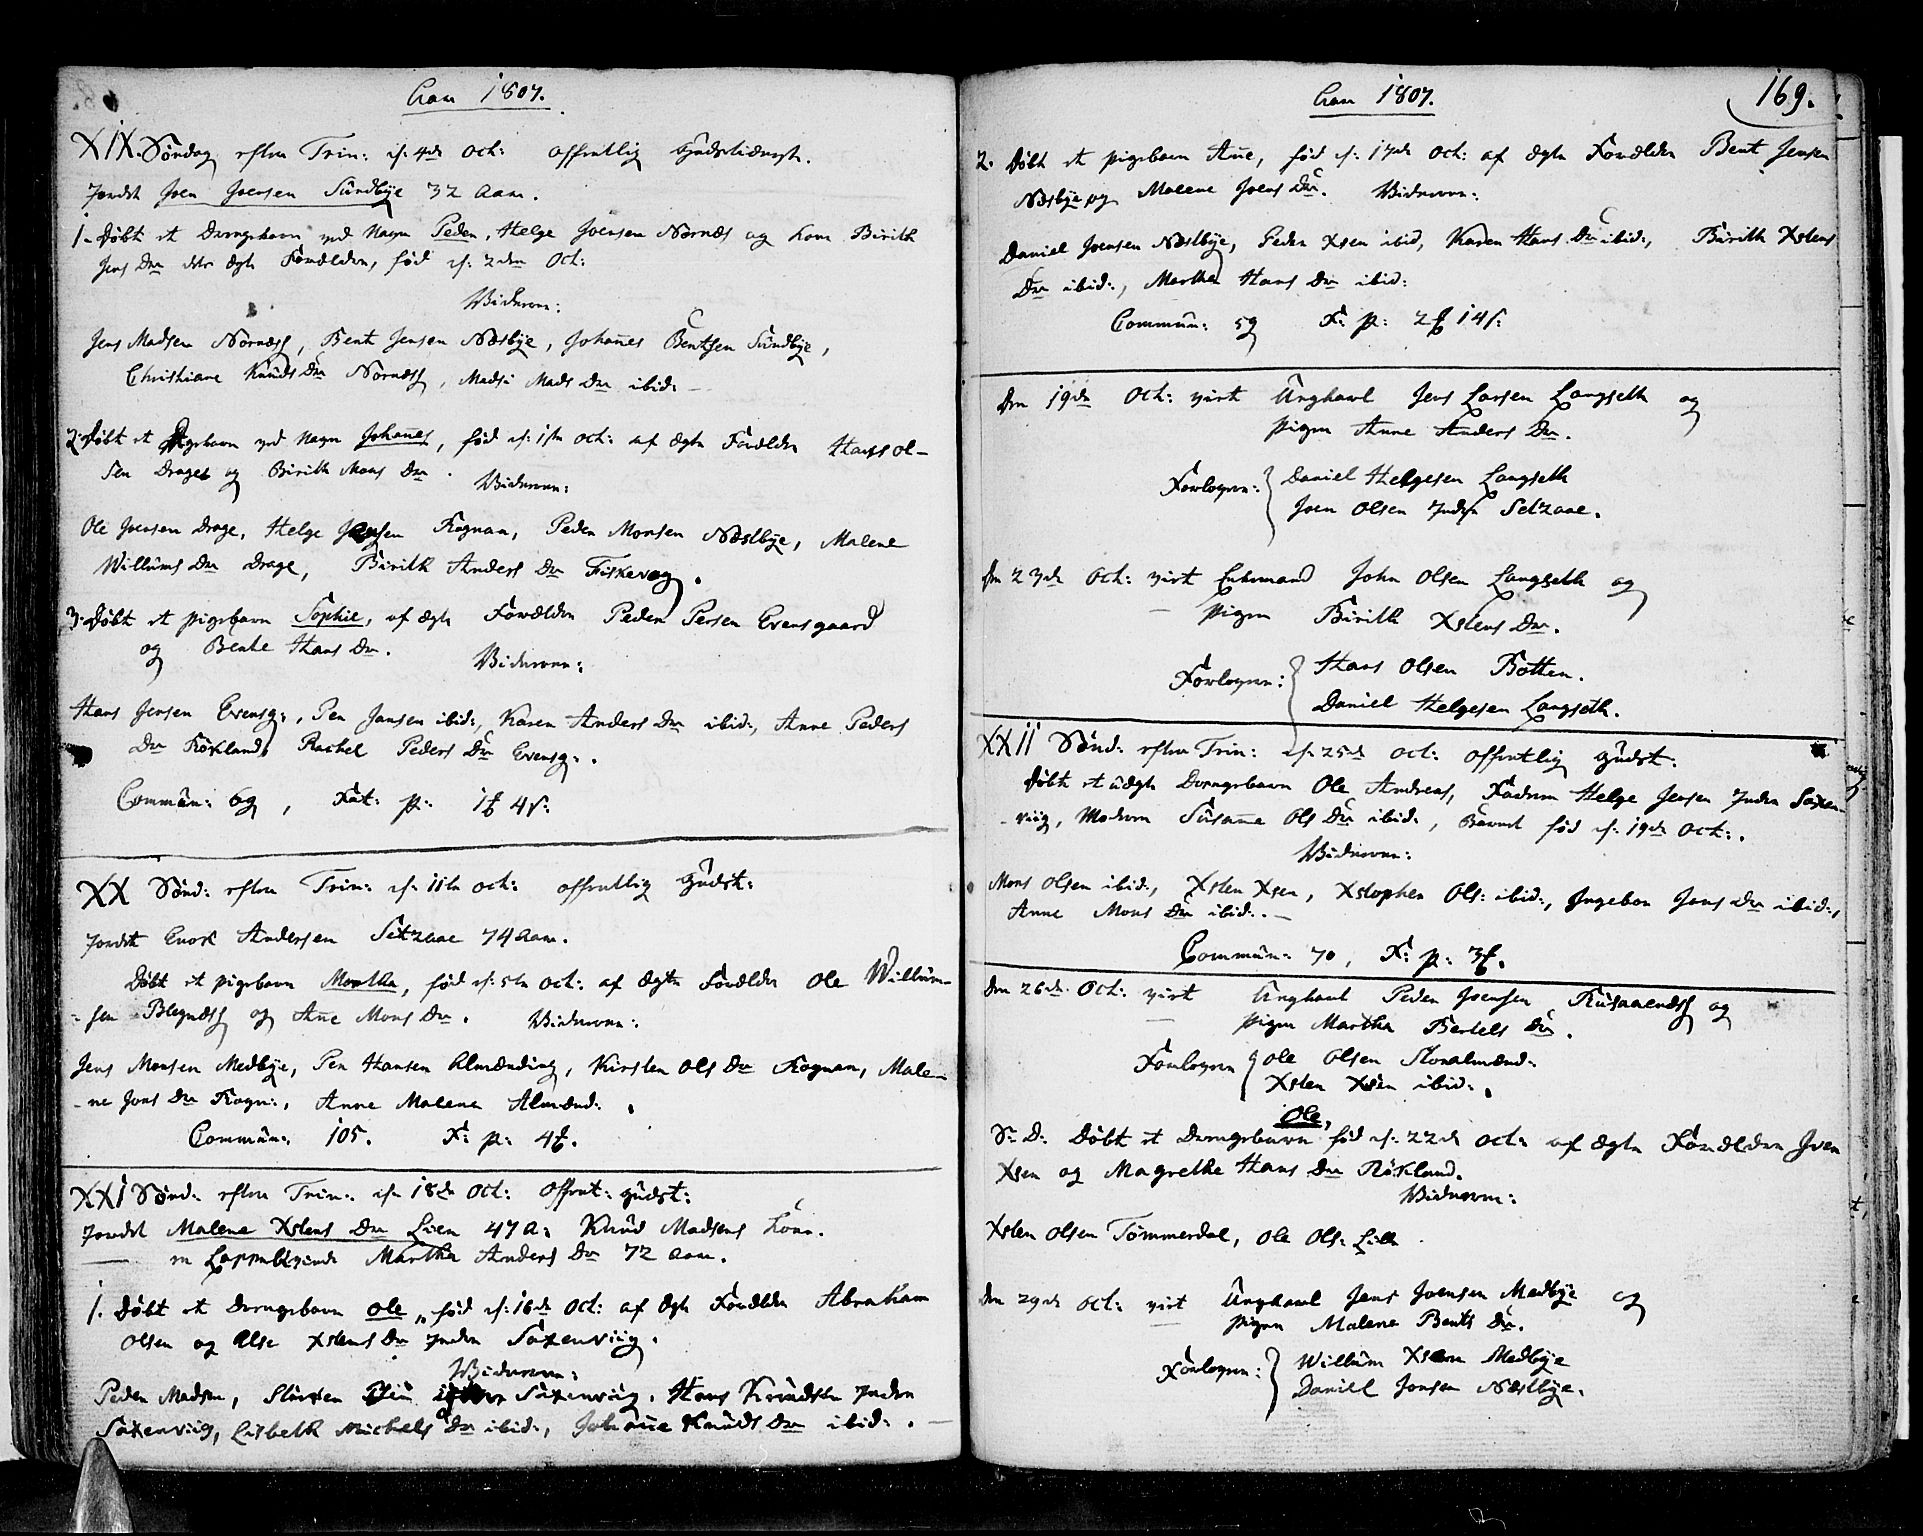 Aar 1807.
XIX. Søndag efter Trin: d: 4de Oct: offentlig Gudstieneste.
Jordet Joen Joensen Sundbye 32 Aar.
1. Døbt et Drengebarn ved Navn Peder, Helge Joensen Nornæs og Kone Birith
Jens Dr deres ægte Forældre, fød d: 2den Oct:
Vidnerne:
Jens Madsen Nornæss, Bent Jensen Næsbye, Johannes Bentsen Sundbye,
Christiane Knuds Dr Nornæss, Madsi Mads Dr ibid: –
2. Døbt et Pigebarn ved Navn Johanne, fød d: 1ste Oct: af ægte Forældre Hans Ol-
sen Draget og Birith Mons Dr.
Vidnerne:
Ole Joensen Drage, Helge Jensen Rognan, Peder Monsen Næstbye, Malene
Willums Dr Drage, Birith Anders Dr Fiskevog.
3. Døbt et Pigebarn Sophie, af ægte Forældre Peder Persen Evensgaard
og Bente Hans Dr.
Vidnerne:
Hans Jensen Evensg:, Per Jansen ibid:, Karen Anders Dr ibid:, Anne Peders
Dr Røkland, Rachel Peders Dr Evensg:.
Commun: 69, Fat: p: 1 ƒ 4 s:
XX Sønd: efter Trin: d: 11te Oct: offentlig Gudst:
Jordet Enok Andersen Setzaae 74 Aar.
Døbt et Pigebarn Martha, fød d: 5te Oct: af ægte Forældre Ole Willum-
sen Blegnæss og Ane Mons Dr. Vidnerne:
Jens Monsen Medbye, Per Hansen Almænding, Kirsten Ols Dr Rognan, Male-
ne Jons Dr Rogn:, Anne Malene Almænd:.
Commun: 105. F: p: 4 ƒ.
XXI Sønd: efter Trin: d: 18de Oct: Offent: Gudst:
Jordet Malene Xstens Dr Lien 47 A: Knud Madsens Kone.
— en Lappekvinde Martha Anders Dr 72 Aar.
1. Døbt et Drengebarn Ole, fød d: 16de Oct: af ægte Forældre Abraham
Olsen og Else Xstens Dr Indre Saxenviig.
Vidnerne:
Peder Madsen, Saxenviig, Hans Knudsen Indre
Saxenviig, Lisbeth Michels Dr ibid:, Johanne Knuds Dr ibid:. –
Aar 1807.
169.
2. Døbt et Pigebarn Ane, fød d: 17de Oct: af ægte Forældre Bent Jensen
Næsbye og Malene Joens Dr. Vidnerne:
Daniel Joensen Næstbye, Peder Xsen ibid, Karen Hans Dr ibid:, Birith Xstens
Dr ibid:, Martha Hans Dr ibid:
Commun: 59 F: p: 2 ƒ 14 s:
Den 19de Oct: viet Ungkarl Jens Larsen Langseth og
Pigen Anne Anders Dr.
Forlovere: Daniel Helgesen Langseth
Joen Olsen Indre Setzaae.
Den 23de Oct: viet Enkemand John Olsen Langseth og
Pigen Birith Xstens Dr.
Forlovere: Hans Olsen Botten.
Daniel Helgesen Langseth.
XXII Sønd: efter Trin: d: 25de Oct: offentlig Gudst:
Døbt et uægte Drengebarn Ole Andreas, Faderen Helge Jensen Indre Saxen-
viig, Moderen Susanne Ols Dr ibid:, Barnet fød d: 19de Oct:.
Vidnerne:
Mons Olsen ibid:, Xsten Xsen, Xstopher Ols: ibid:, Ingebor Jons Dr ibid:,
Anne Mons Dr ibid:. –
Commun: 70, F: p: 3 ƒ.
Den 26de Oct: viet Ungkarl Peder Joensen Rusaaenæss og
Pigen Martha Bertels Dr.
Forlovere Ole Olsen Storalmænd:
Xsten Xsen ibid:.
Ole,
S: D: Døbt et Drengebarn fød d: 22de Oct: af ægte Forældre Iver
Xsen og Magrethe Hans Dr Røkland.
Vidnerne:
Xsten Olsen Tømmerdal, Ole Ols: Lille
Den 29de Oct: viet Ungkarl Jens Joensen Medbye og
Pigen Malene Bents Dr.
Forlovere: Willum Xsten Medbye
Daniel Jonsen Næstbye.